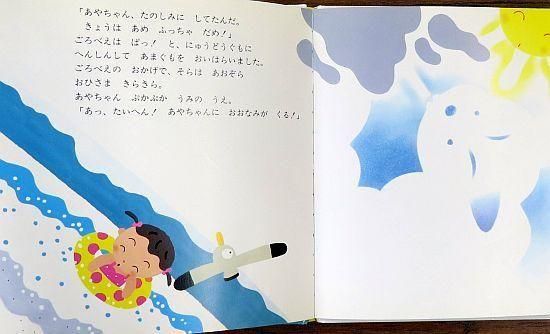 「あやちゃん、たのしみに してたんだ。
きょうは あめ ふっちゃ だめ！」
ごろべえは ぱっ！ と、にゅうどうぐもに
へんしんして あまぐもを おいはらいました。
ごろべえの おかげで、そらは あおぞら
おひさま きらきら。
あやちゃん ぷかぷか うみの うえ。
「あっ、たいへん！ あやちゃんに おおなみが くる！」